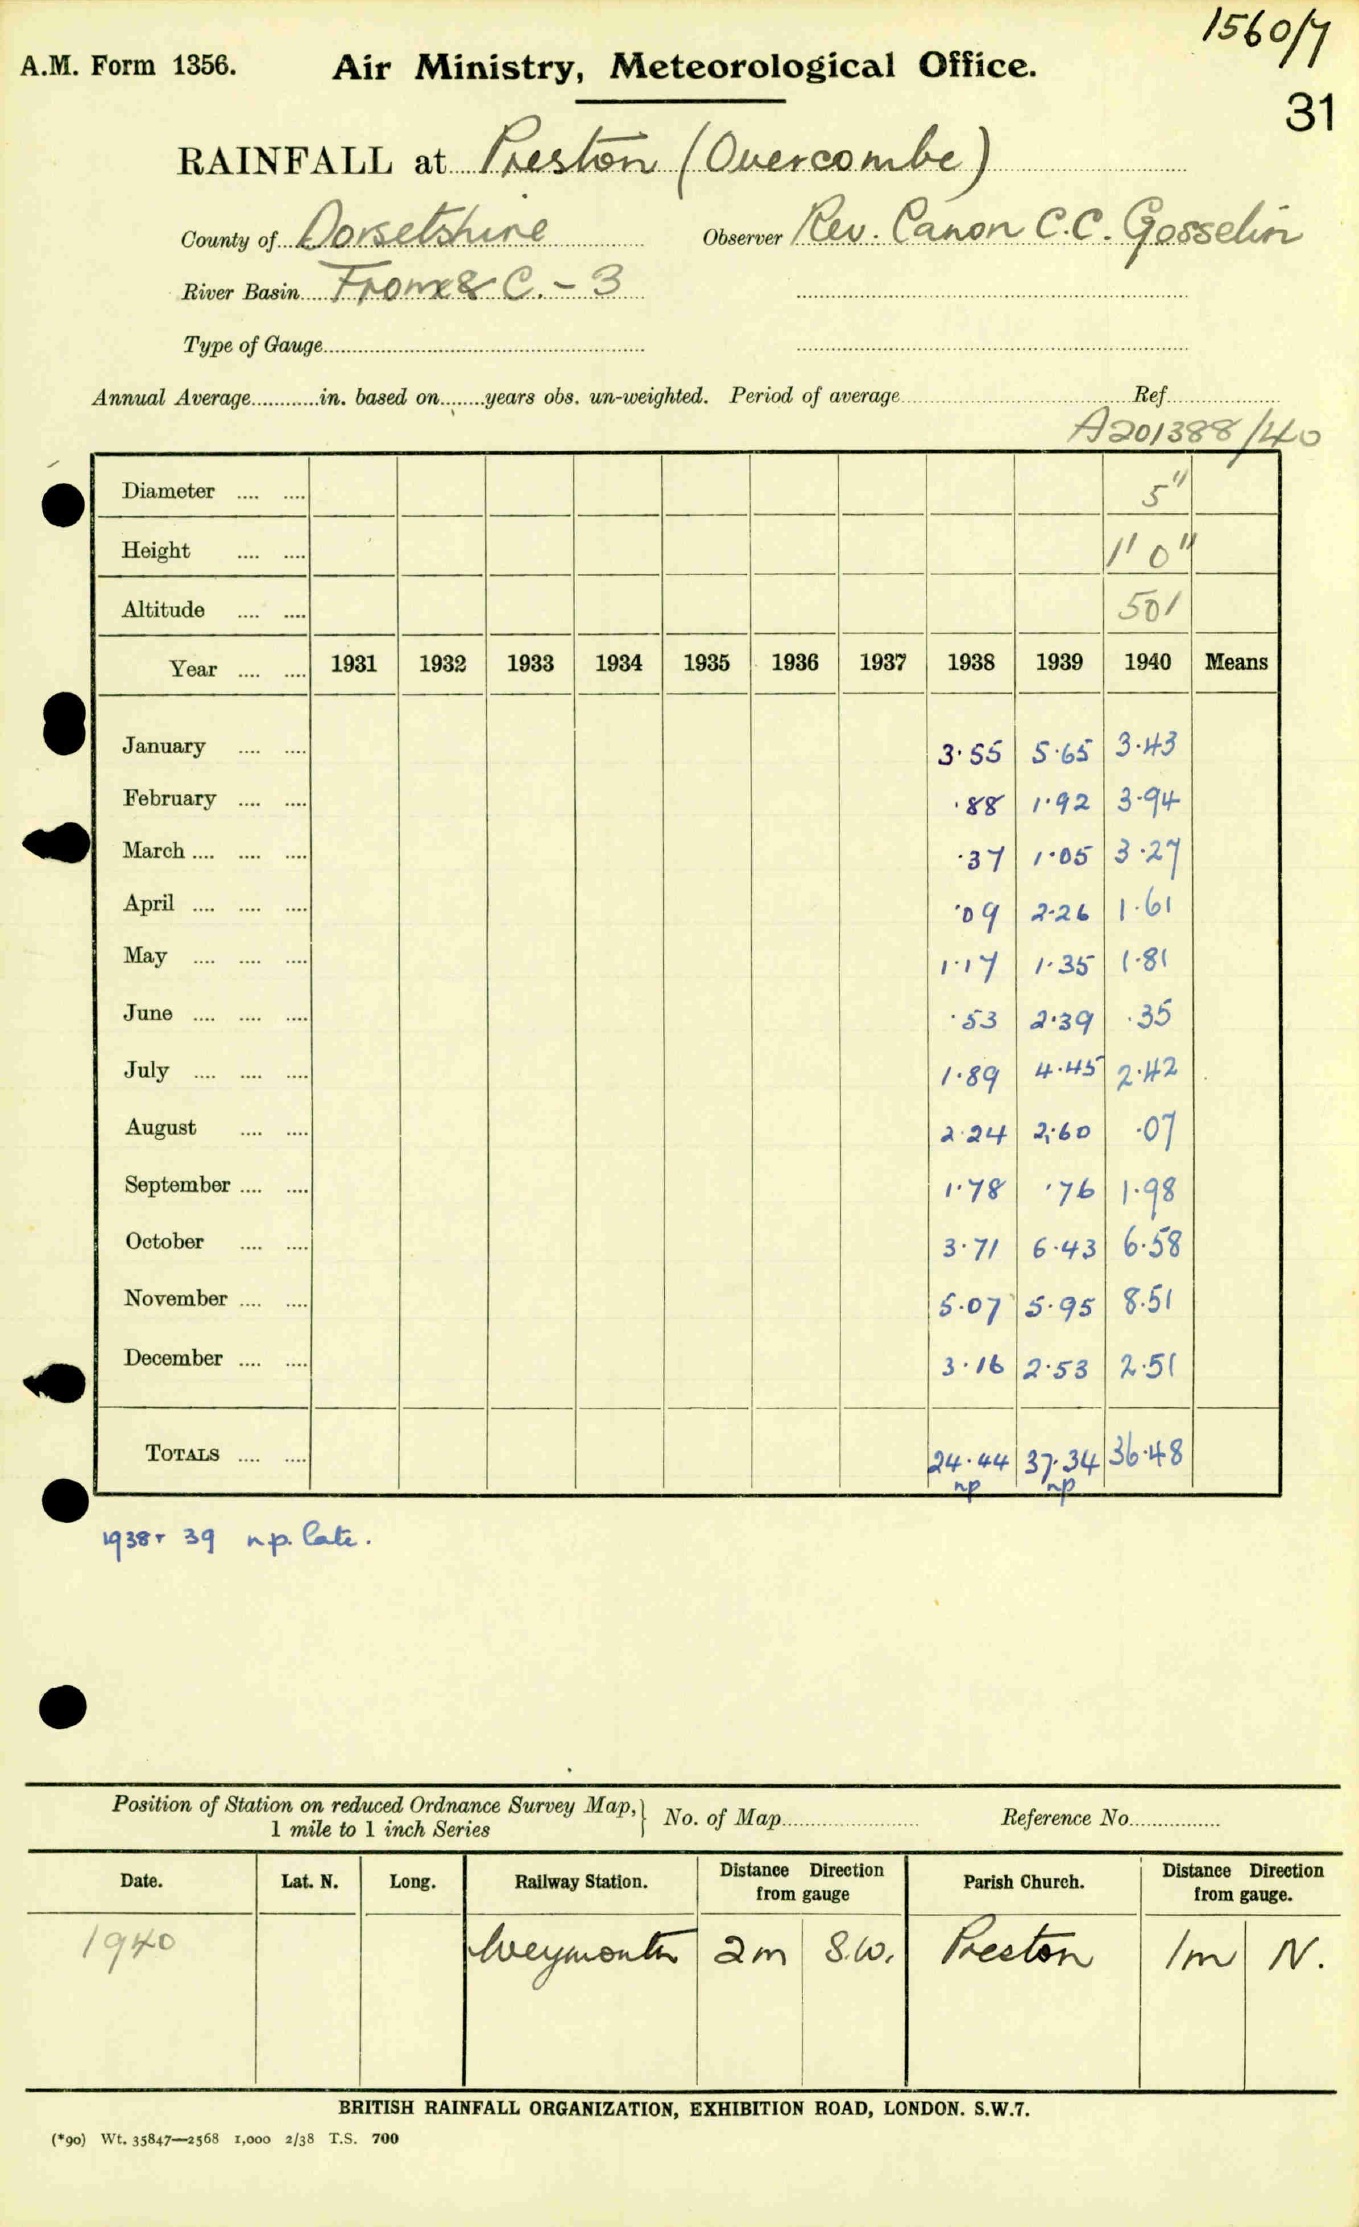 1560/7
A.M. Form 1356. Air Ministry, Meteorological Office.
31
RAINFALL at Preston (Overcombe)
County of Dorsetshire Observer Rev. Canon C.C. Gosselin
River Basin Frome & C. - 3
Type of Gauge
Annual Average in. based on years obs. un-weighted. Period of average Ref.
A201388/40
Diameter 5"
Height 1' 0"
Altitude 50'
Year 1931 1932 1933 1934 1935 1936 1937 1938 1939 1940 Means
January 3.55 5.65 3.43
February .88 1.92 3.94
March .37 1.05 3.27
April .09 2.26 1.61
May 1.17 1.35 1.81
June .53 2.39 .35
July 1.89 4.45 2.42
August 2.24 2.60 .07
September 1.78 .76 1.98
October 3.71 6.43 6.58
November 5.07 5.95 8.51
December 3.16 2.53 2.51
TOTALS 24.44 37.34 36.48
np np
1938+ 39 n.p. late.
Position of Station on reduced Ordnance Survey Map, No. of Map Reference No.
1 mile to 1 inch Series
Date. Lat. N. Long. Railway Station. Distance Direction from gauge Parish Church. Distance Direction from gauge.
1940 Weymouth 2m S.W. Preston 1m N.
BRITISH RAINFALL ORGANIZATION, EXHIBITION ROAD, LONDON. S.W.7.
(*90) Wt. 35847—2568 1,000 2/38 T.S. 700